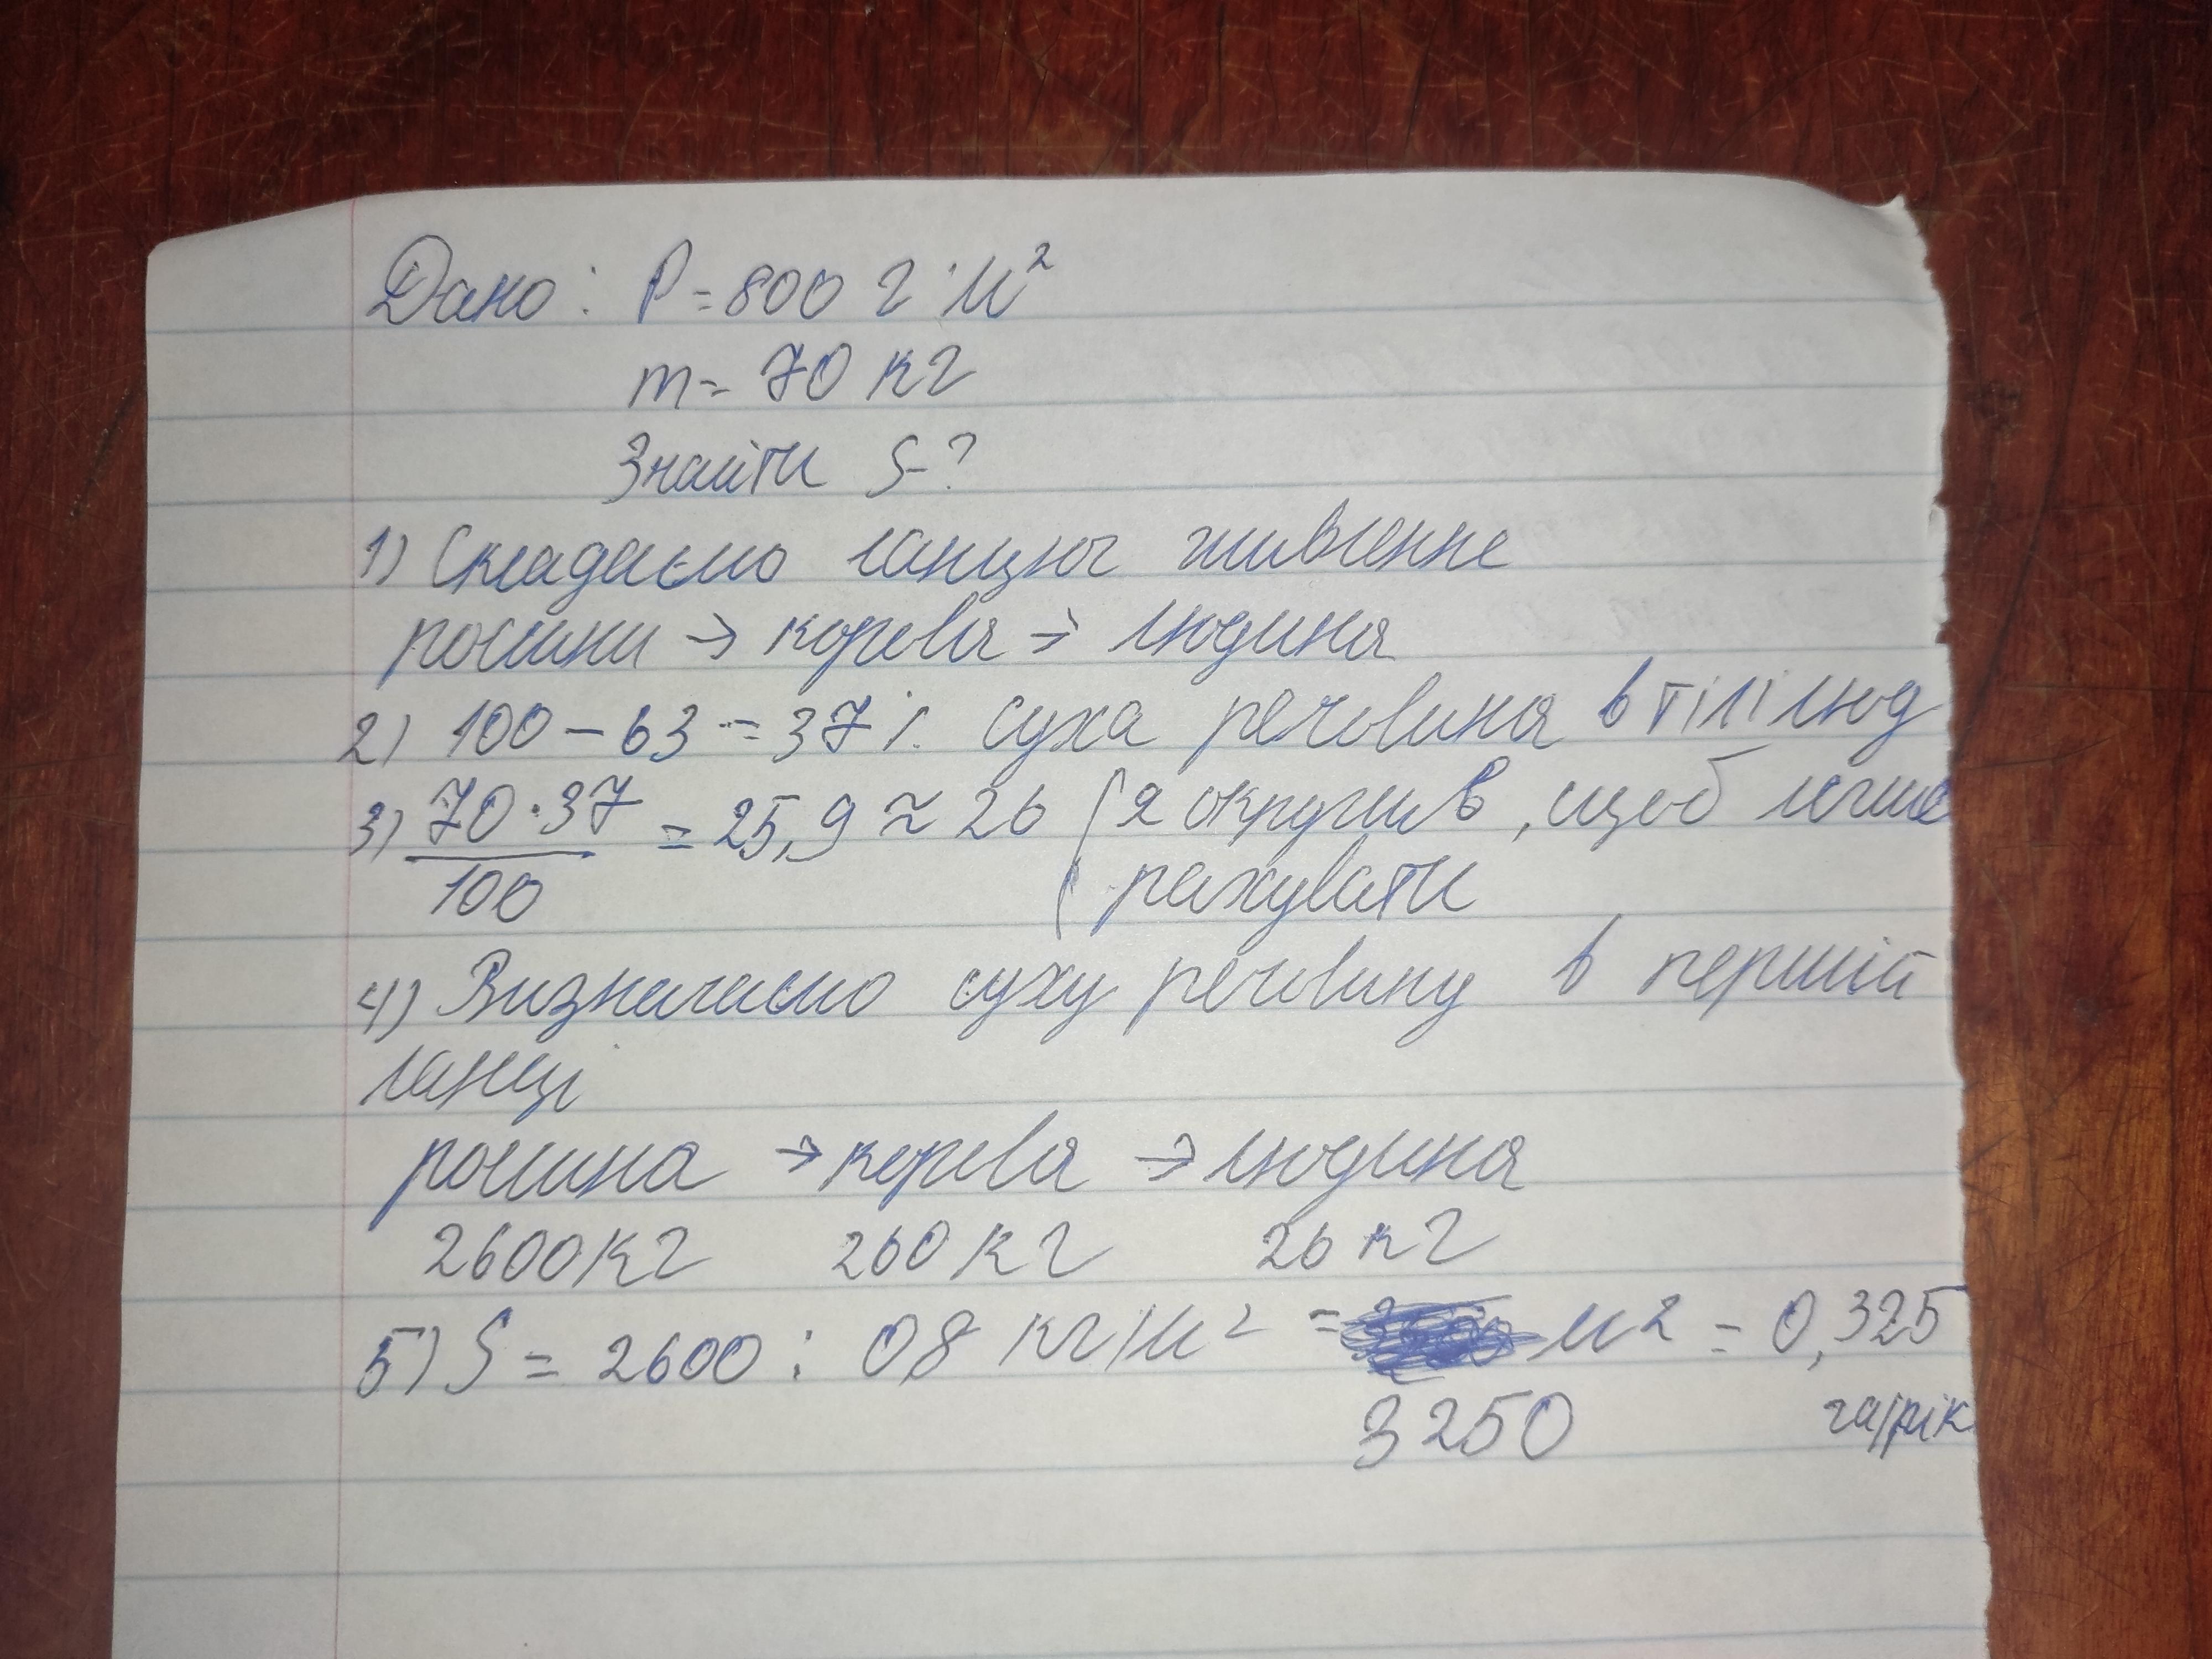 Дано: P = 800 г·м²
m = 70 кг
Знайти S-?
1) Складаємо ланцюг живлення
рослини → корова → людина
2) 100 - 63 = 37% суха речовина в тілі люд
3) 70·37/100 = 25,9 ≈ 26 (я округлив, щоб легше
рахувати
4) Визначаємо суху речовину в першій
ланці
рослина → корова → людина
2600 кг 260 кг 26 кг
5) S = 2600 : 0,8 кг/м² = м² = 0,325
3250 га/рік